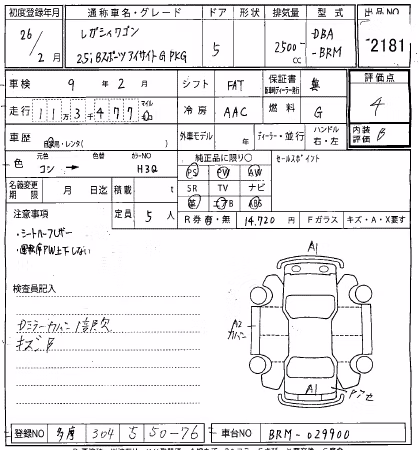 初度登録年月 通称車名・グレード ドア 形状 排気量 型式 出品NO
26/2月 レガシィワゴン 2.5i Bスポーツアイサイト G PKG 5 2500cc DBA-BRM 2181
車検 9年2月 シフト FAT 保証書 無 燃料 G 評価点 4
走行 113477 マイル 冷房 AAC 内装評価 B
車歴 自家用・レンタ( ) 外車モデル 年 ディーラー・並行 ハンドル 右・左
色 元色 コン → 色替 カラーNO H3Q 純正品に限り○ セールスポイント
PS PW AW
SR TV ナビ
革 エアB ABS
名義変更期限 月 日迄 積載 t
定員 5人 R券 有・無 14.720円 Fガラス キズ・A・X要す
注意事項
・シートハーフレザー
・運転席PW上下しない
検査員記入
Dミラーカバー1部欠
キズB
A1
A2 カバー
A1
登録NO 多摩 304 5 50-76 車台NO BRM-029900